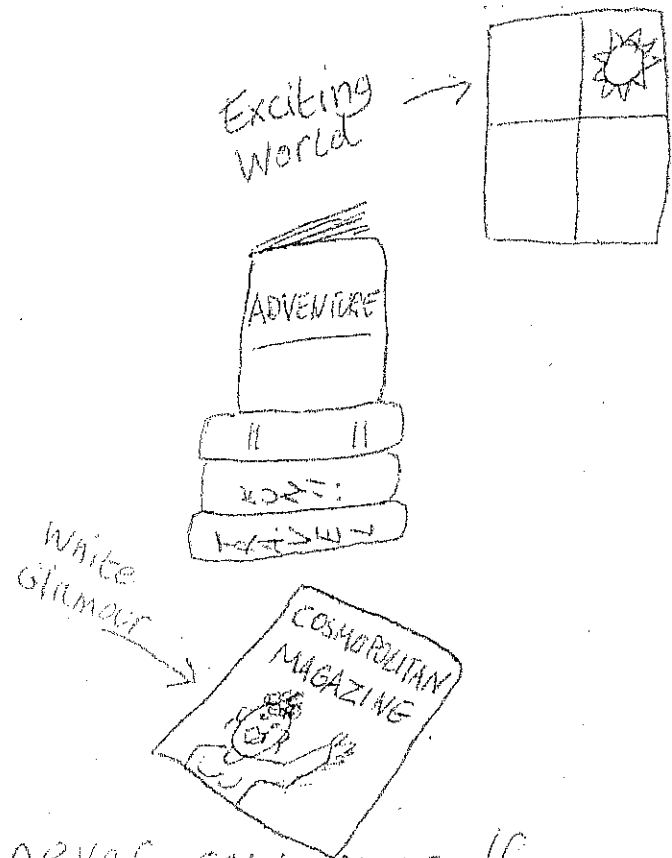 Exciting
World
ADVENTURE
White
Glamour
COSMOPOLITAN
MAGAZINE
never